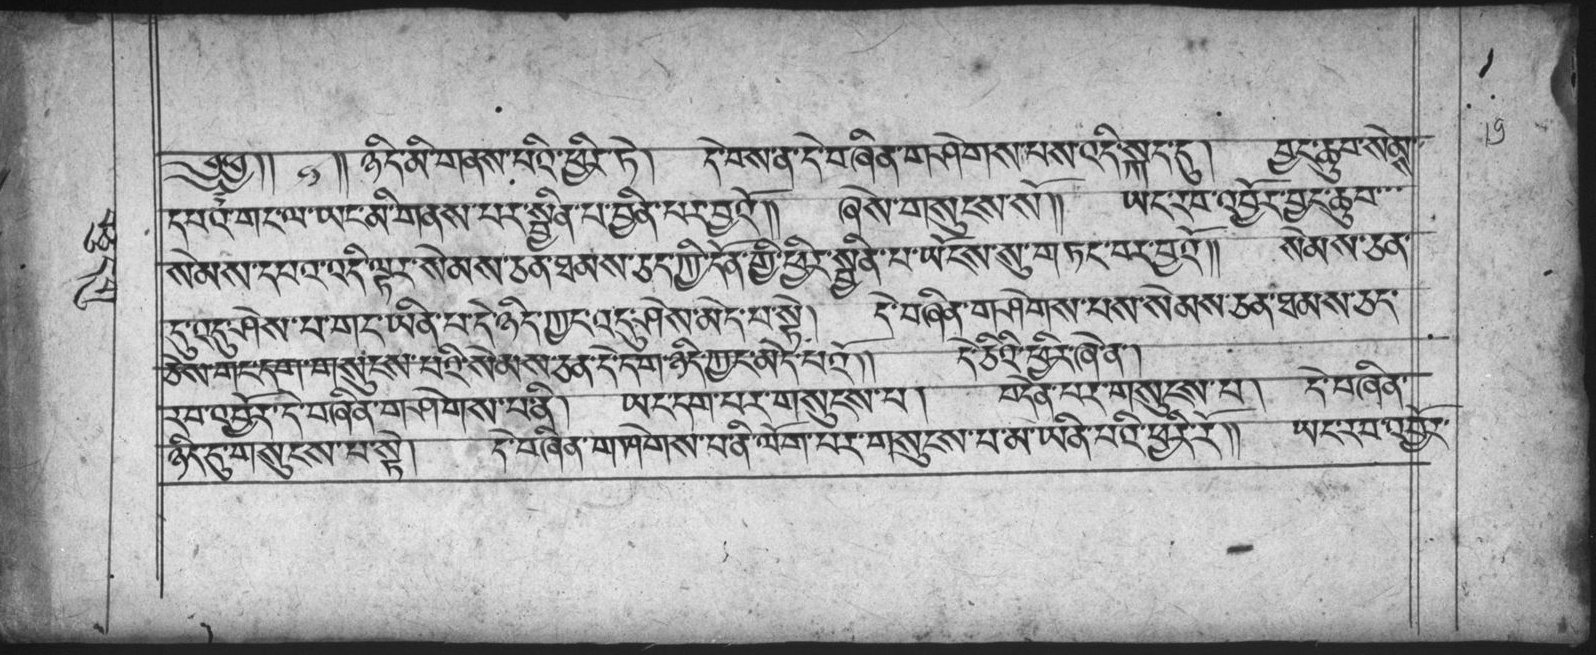 ༄༅།། ༡ །། ཉིད་མི་གནས་པའི་ཕྱིར་ཏེ། དེ་བས་ན་དེ་བཞིན་གཤེགས་པས་འདི་སྐད་དུ། བྱང་ཆུབ་སེམས་
དཔའ་གང་ལ་ཡང་མི་གནས་པར་སྦྱིན་པ་བྱིན་པར་བྱའོ།། ཞེས་གསུངས་སོ།། ཡང་རབ་འབྱོར་བྱང་ཆུབ་
སེམས་དཔའ་འདི་ལྟར་སེམས་ཅན་ཐམས་ཅད་ཀྱི་དོན་གྱི་ཕྱིར་སྦྱིན་པ་ཡོངས་སུ་གཏང་བར་བྱའོ།། སེམས་ཅན་
དུ་འདུ་ཤེས་པ་གང་ཡིན་པ་དེ་ཉིད་ཀྱང་འདུ་ཤེས་མེད་པ་སྟེ། དེ་བཞིན་གཤེགས་པས་སེམས་ཅན་ཐམས་ཅད་
ཅེས་གང་དག་གསུངས་པའི་སེམས་ཅན་དེ་དག་ཉིད་ཀྱང་མེད་པའོ།། དེ་ཅིའི་ཕྱིར་ཞེ་ན།
རབ་འབྱོར་དེ་བཞིན་གཤེགས་པ་ནི། ཡང་དག་པར་གསུངས་པ། བདེན་པར་གསུངས་པ། དེ་བཞིན་
ཉིད་དུ་གསུངས་པ་སྟེ། དེ་བཞིན་གཤེགས་པ་ནི་ལོག་པར་གསུངས་པ་མ་ཡིན་པའི་ཕྱིར་རོ།། ཡང་རབ་འབྱོར་
19